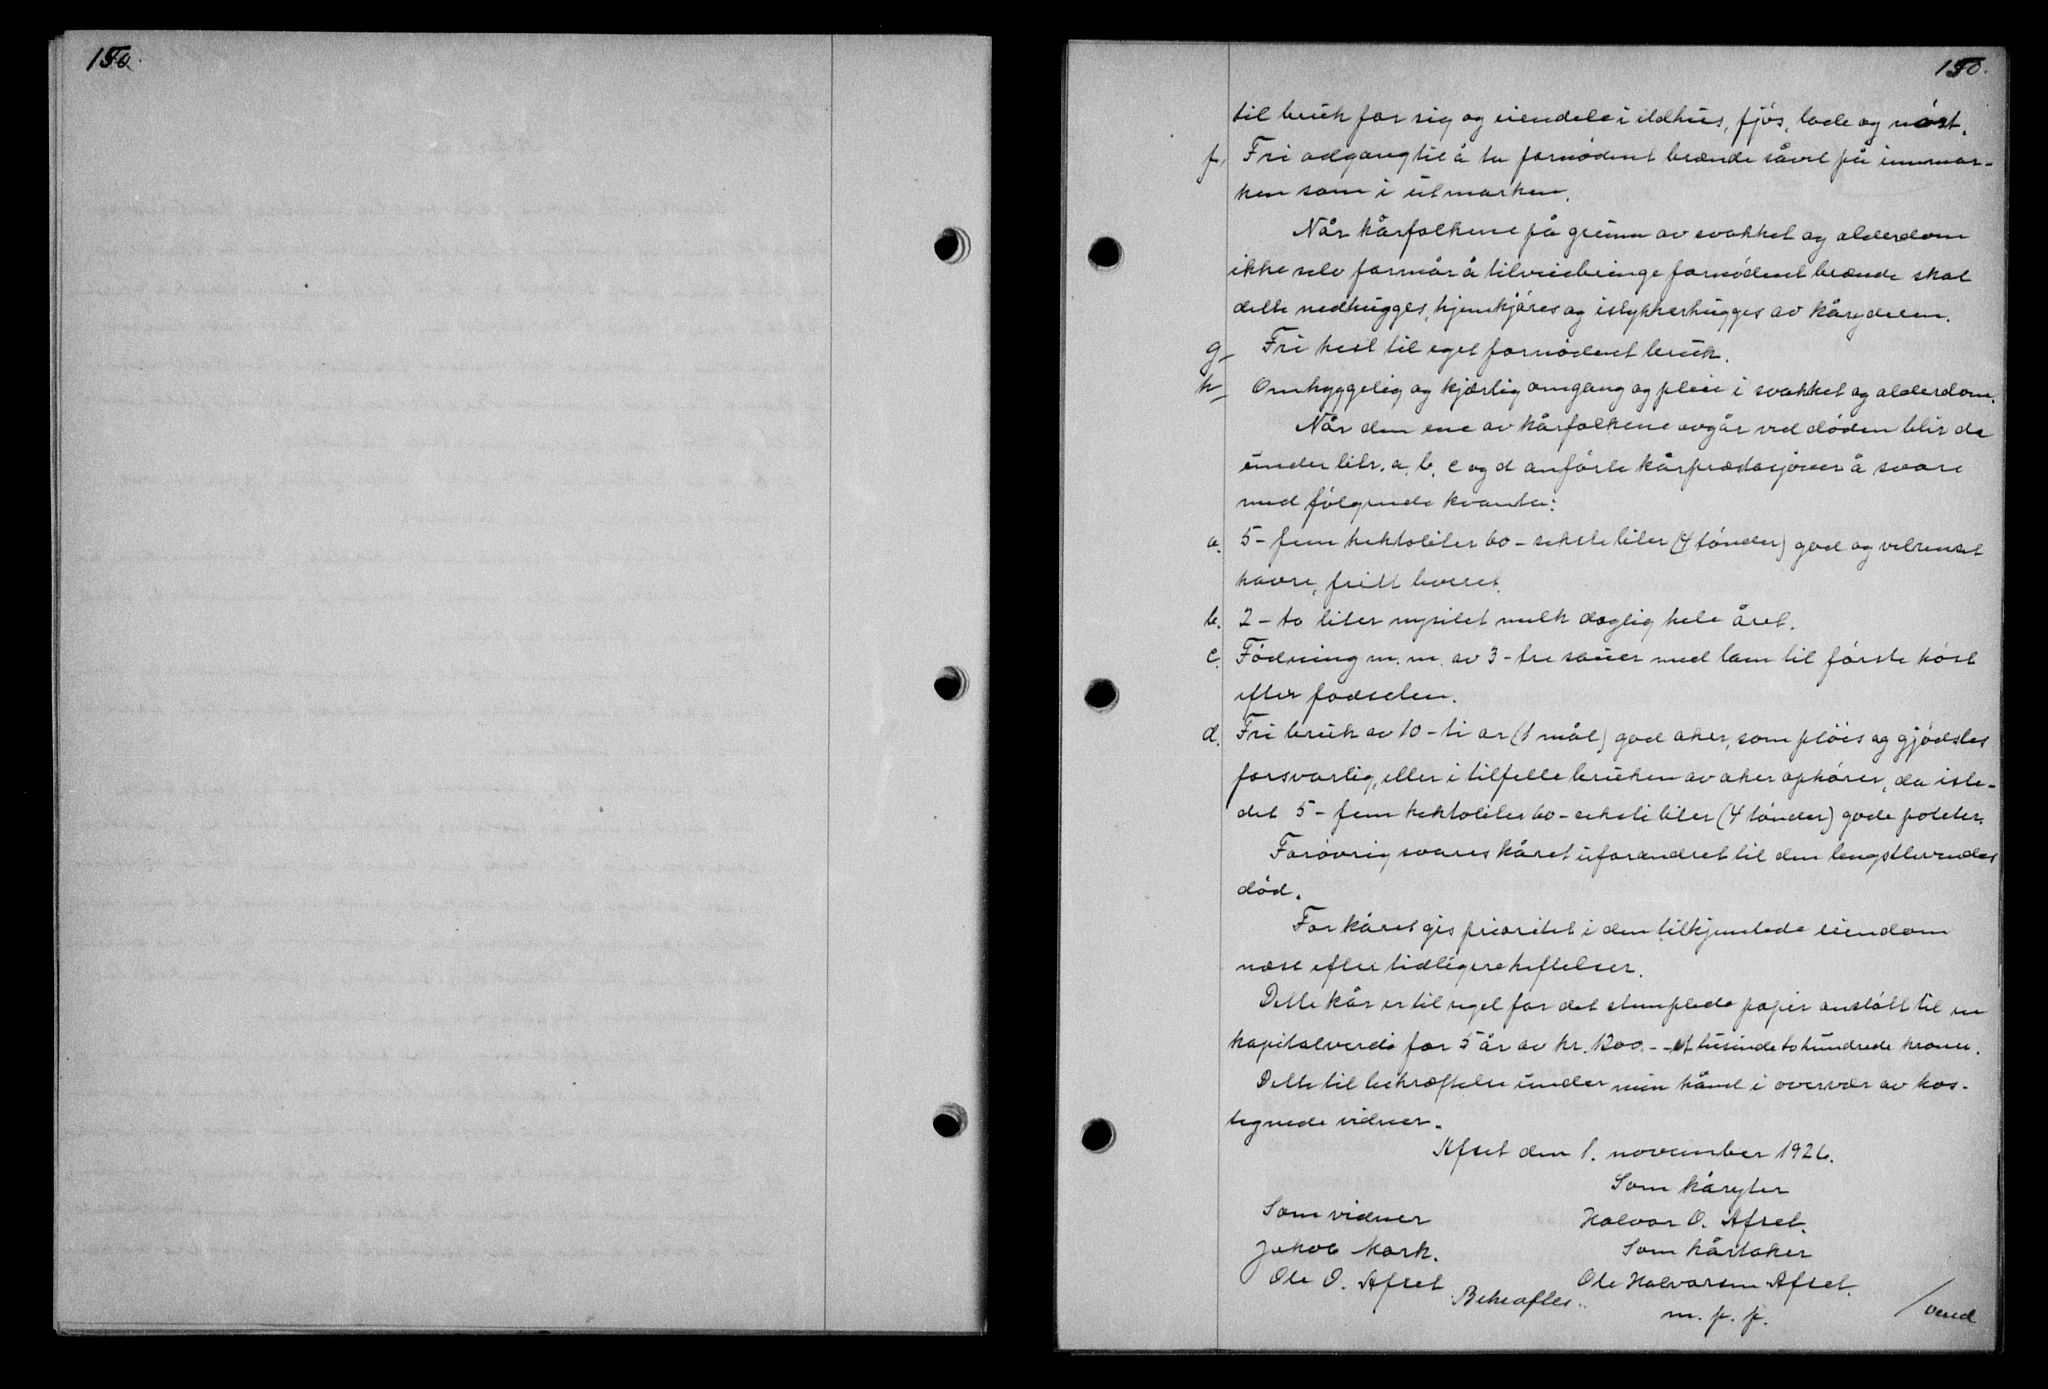 150.
150.
til bruk for sig og eiendele i ildhus, fjøs, lade og nøst.
f, Fri adgang til å ta fornødent brænde såvel på innmar-
ken som i utmarken.
Når kårfolkene på grunn av svakhet og alderdom
ikke selv formår å tilveiebringe fornødent brænde skal
dette nedhugges, hjemkjøres og istykkerhugges av kåryderen.
g, Fri hest til eget fornødent bruk.
h, Omhyggelig og kjærlig omgang og pleie i svakhet og alderdom.
Når den ene av kårfolkene avgår ved døden blir de
under litr. a, b, c og d anførte kårprestasjoner å svare
med følgende kvanta:
a. 5 - fem hektoliter 60 - seksti liter (4 tønder) god og velrenset
havre, fritt levert.
b. 2 - to liter nysilet melk daglig hele året.
c. Fødning m. m. av 3 - tre sauer med lam til første høst
efter fødselen.
d. Fri bruk av 10 - ti ar (1 mål) god aker, som pløies og gjødsles
forsvarlig, eller i tilfelle bruken av aker ophører, da iste-
det 5 - fem hektoliter 60 - seksti liter (4 tønder) gode poteter.
Forøvrig svares kåret uforandret til den lengstlevendes
død.
For kåret gis prioritet i den tilskjøntede eiendom
næst efter tidligere heftelser.
Dette kår er til regel for det stemplede papir anslått til en
kapitalverdi for 5 år av kr. 1200.- et tusinde to hundrede kroner.
Dette til bekræftelse under min hånd i overvær av hos-
tegnede vidner.
Afset den 1. november 1926.
Som kåryter
Som vidner Halvor O. Afset.
Jakob Mork. Som kårtaker
Ole O. Afset Ole Halvorsen Afset.
Bekræftes. m. p. p. /vend